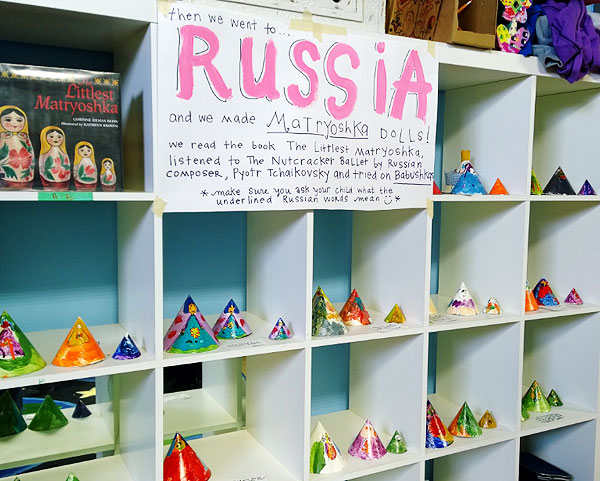 then we went to...
RUSSIA
and we made Matryoshka DOLLS!
we read the book The Littlest Matryoshka,
listened to The Nutcracker Ballet by Russian
composer, Pyotr Tchaikovsky and tried on Babushkas
* make sure you ask your child what the
underlined Russian words mean *
Littlest
Matryoshka
CORINNE DEMAS BLISS
Illustrated by KATHRYN BROWN